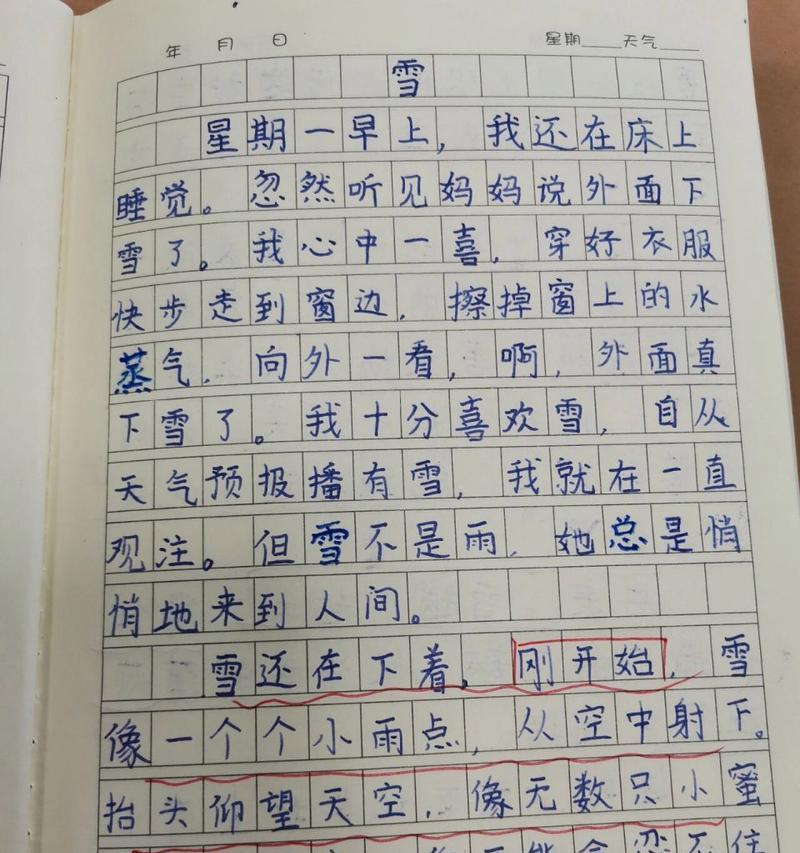 年 月 日 星期____天气____
雪
星期一早上，我还在床上
睡觉。忽然听见妈妈说外面下
雪了。我心中一喜，穿好衣服
快步走到窗边，擦掉窗上的水
蒸气，向外一看，啊，外面真
下雪了。我十分喜欢雪，自从
天气预报播有雪，我就在一直
观注。但雪不是雨，她总是悄
悄地来到人间。
雪还在下着。刚开始，雪
像一个个小雨点，从空中射下。
抬头仰望天空，像无数只小蜜
恋不住